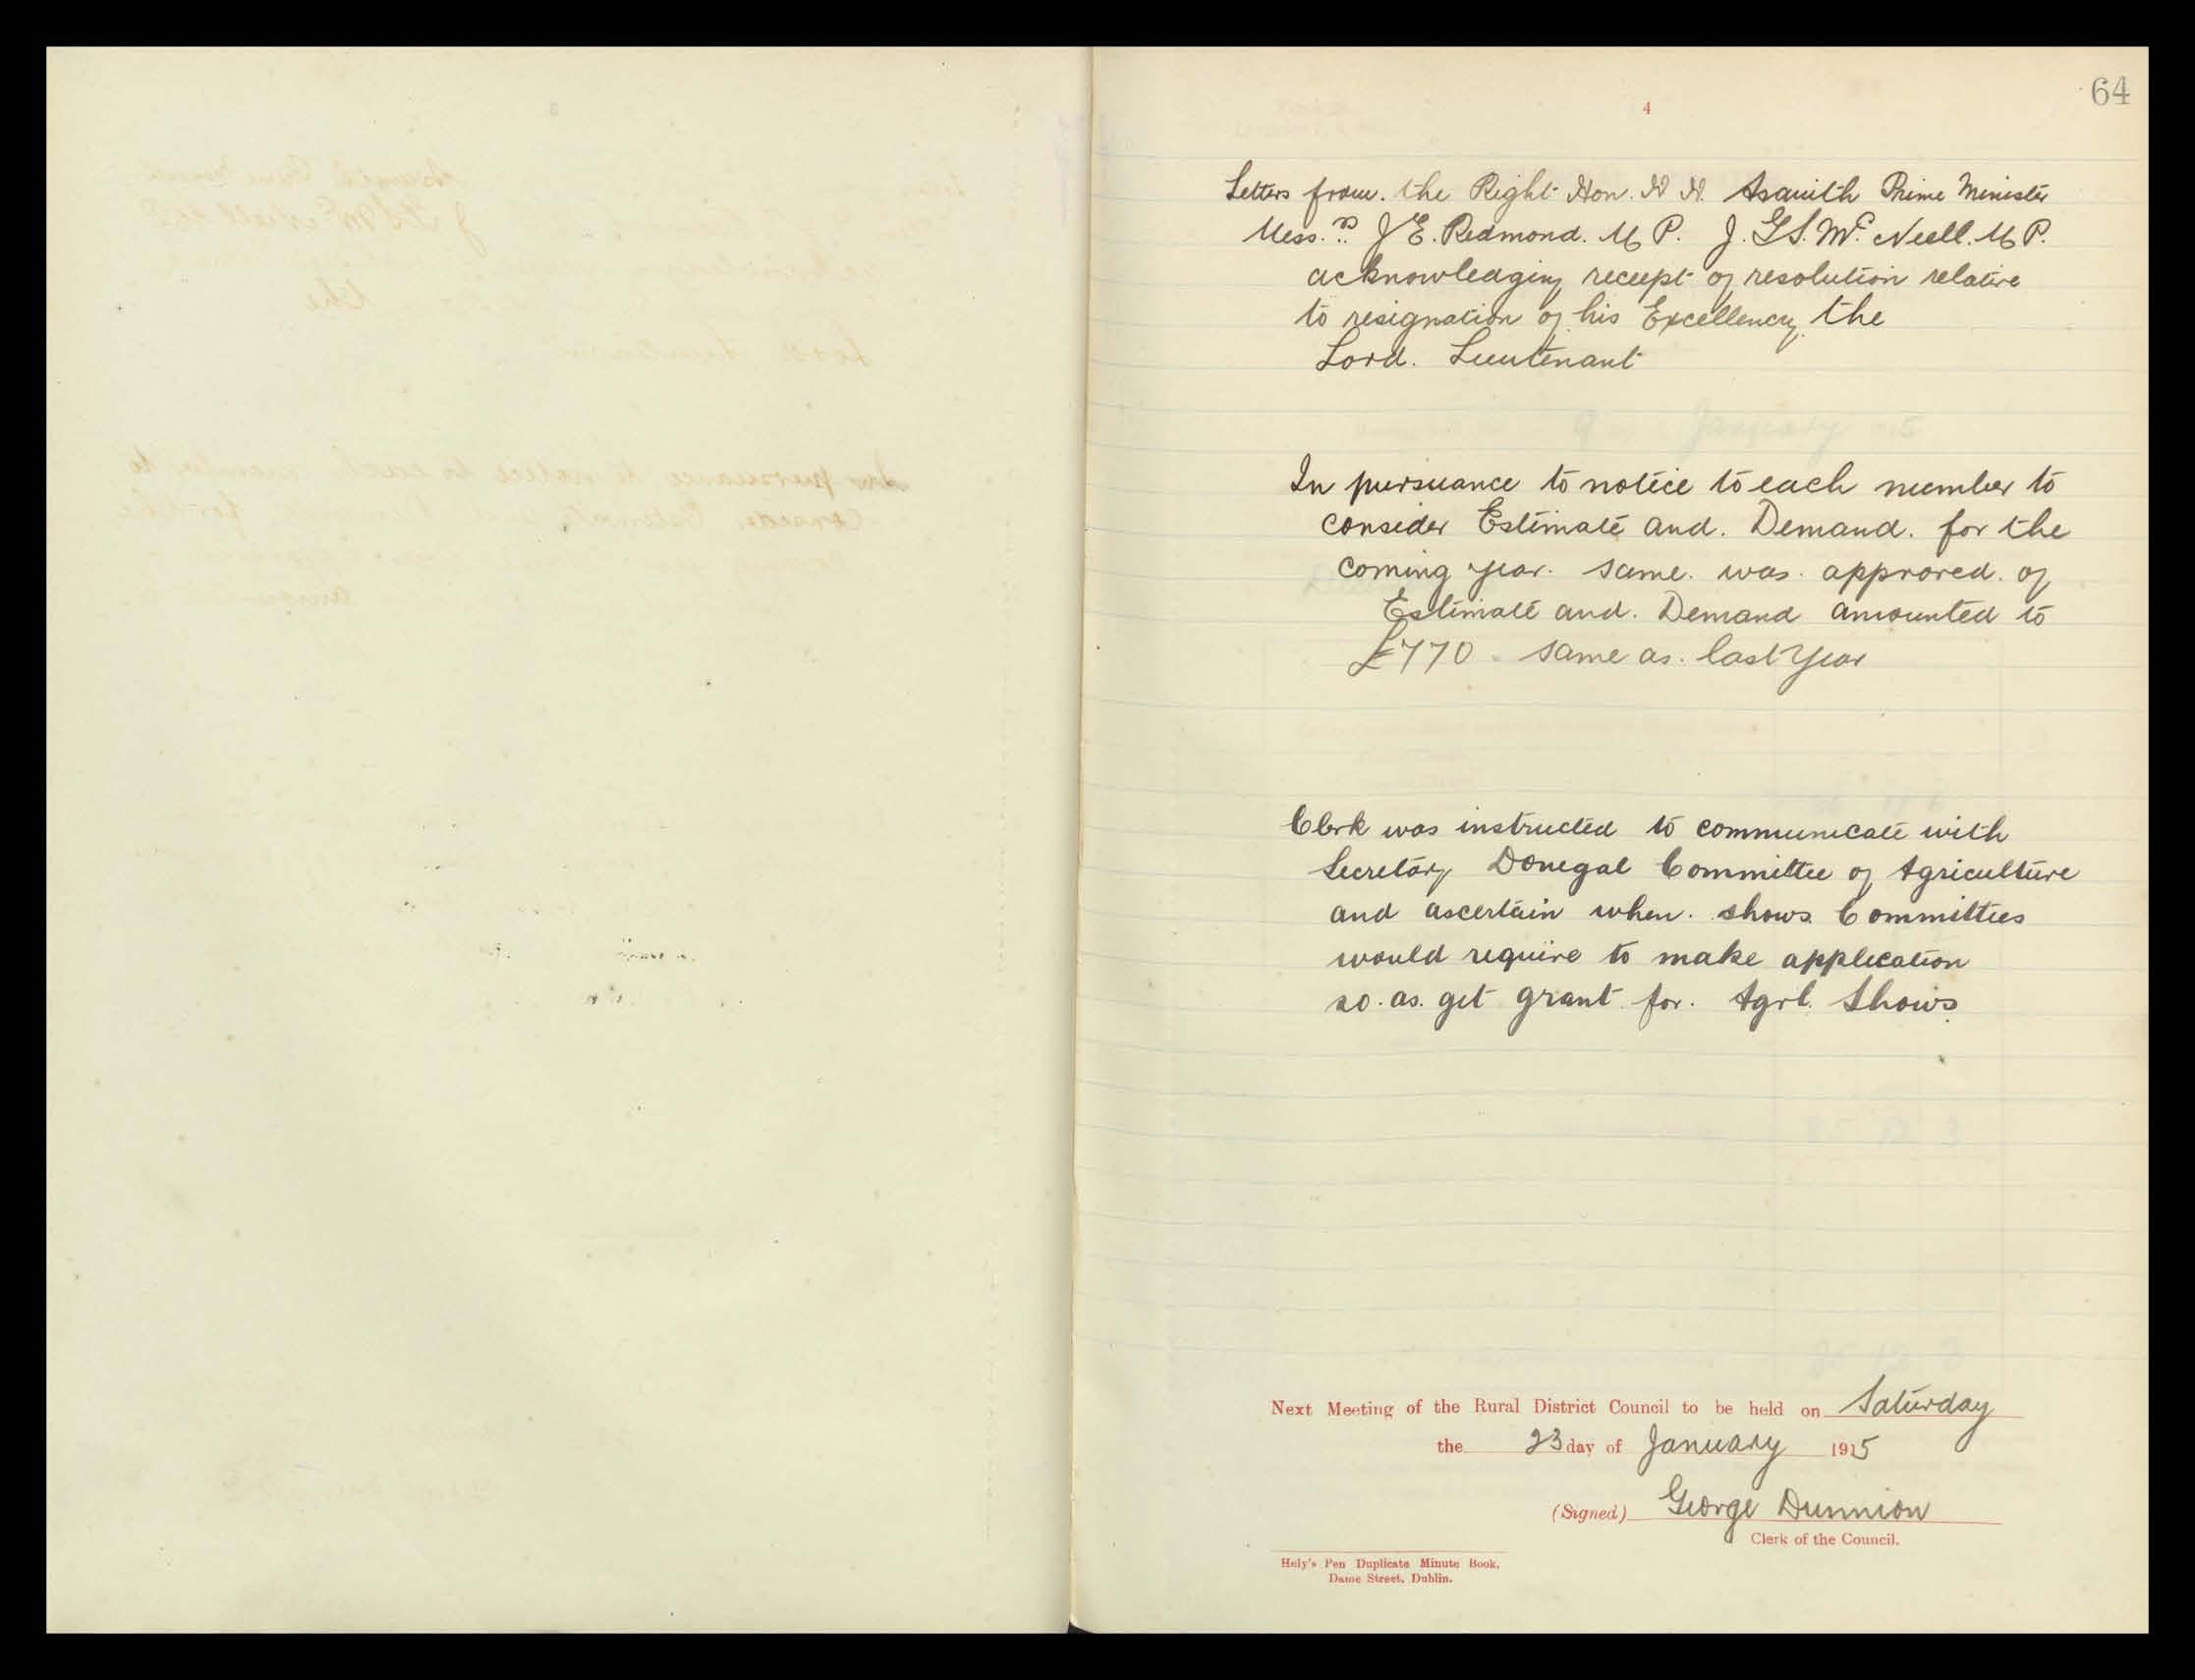 64
4
Letters from. the Right Hon. H H. Asquith Prime Minister
Mess.rs J E. Redmond. M P. J. G S. Mc Neill. M P.
acknowledging receipt of resolution relative
to resignation of his Excellency the
Lord. Lieutenant
In pursuance to notice to each member to
consider Estimate and. Demand. for the
coming year. same. was. approved. of
Estimate and. Demand amounted to
£770 - same as. last year
Clerk was instructed to communicate with
Secretary Donegal Committee of Agriculture
and ascertain when. shows Committies
would require to make application
so. as. get grant for. Agrl. Shows.
Next Meeting of the Rural District Council to be held on Saturday
the 23 day of January 1915
(Signed) George Dunnion
Clerk of the Council.
Hely's Pen Duplicate Minute Book,
Dame Street, Dublin.